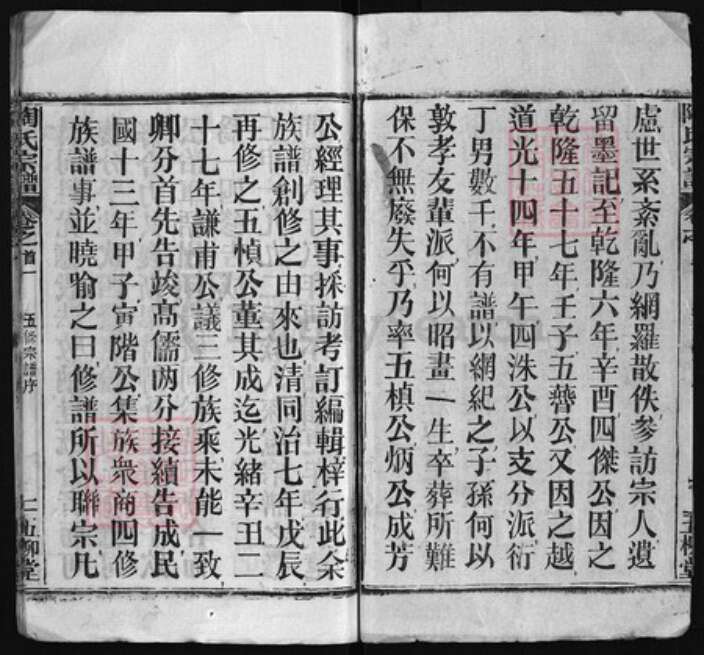 慮世系紊亂乃網羅散佚參訪宗人遺
留墨記至乾隆六年辛酉四傑公因之
乾隆五十七年壬子五瞽公又因之越
道光十四年甲午四洙公以支分派衍
丁男數千不有譜以網紀之子孫何以
敦孝友輩派何以昭畫一生卒葬所難
保不無廢失乎乃率五楨公炳公成芳
公經理其事採訪考訂編輯梓行此余
族譜創修之由來也清同治七年戊辰
再修之五楨公董其成迄光緒辛丑二
十七年謙甫公議三修族乘未能一致
卿分首先告竣高儒兩分接續告成民
國十三年甲子寅階公集族衆商四修
族譜事並曉喻之曰修譜所以聯宗凡
陶氏宗譜
卷之首一
五修宗譜序
五柳堂